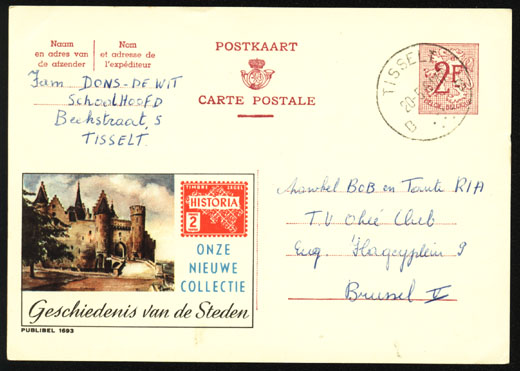 Naam
en adres van
de afzender
Nom
et adresse de
l'expéditeur
POSTKAART
CARTE POSTALE
TISSELT
B
2F
Fam DONS-DE WIT
SCHOOLHOOFD
Beekstraat, 5
TISSELT.
Nonkel BOB en Tante RIA
T.V Ohee Club
Eug. Flageyplein 9
Brussel V
TIMBRE ZEGEL
HISTORIA
2
ONZE
NIEUWE
COLLECTIE
Geschiedenis van de Steden
PUBLIBEL 1593